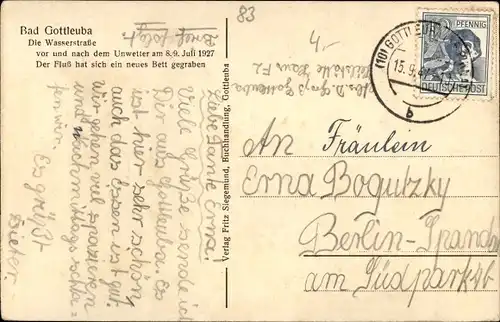 Bad Gottleuba
Die Wasserstraße
vor und nach dem Unwetter am 8./9. Juli 1927
Der Fluß hat sich ein neues Bett gegraben
Brief folgt.
83
Liebe Tante Erna!
Viele Grüße sende ich
Dir aus Gottleuba. Es
ist hier sehr schön,
auch das Essen ist gut.
Wir gehen viel spazieren
und nachmittags schla-
fen wir. Es grüßt
Dieter.
Verlag Fritz Siegemund, Buchhandlung, Gottleuba
Abs. D. Groß Gottleuba
Haus
(10) GOTTLEUBA
15.9.47
b
PFENNIG
DEUTSCHE POST
An Fräulein
Erna Bogutzky
Berlin-Spandau
am Südpark